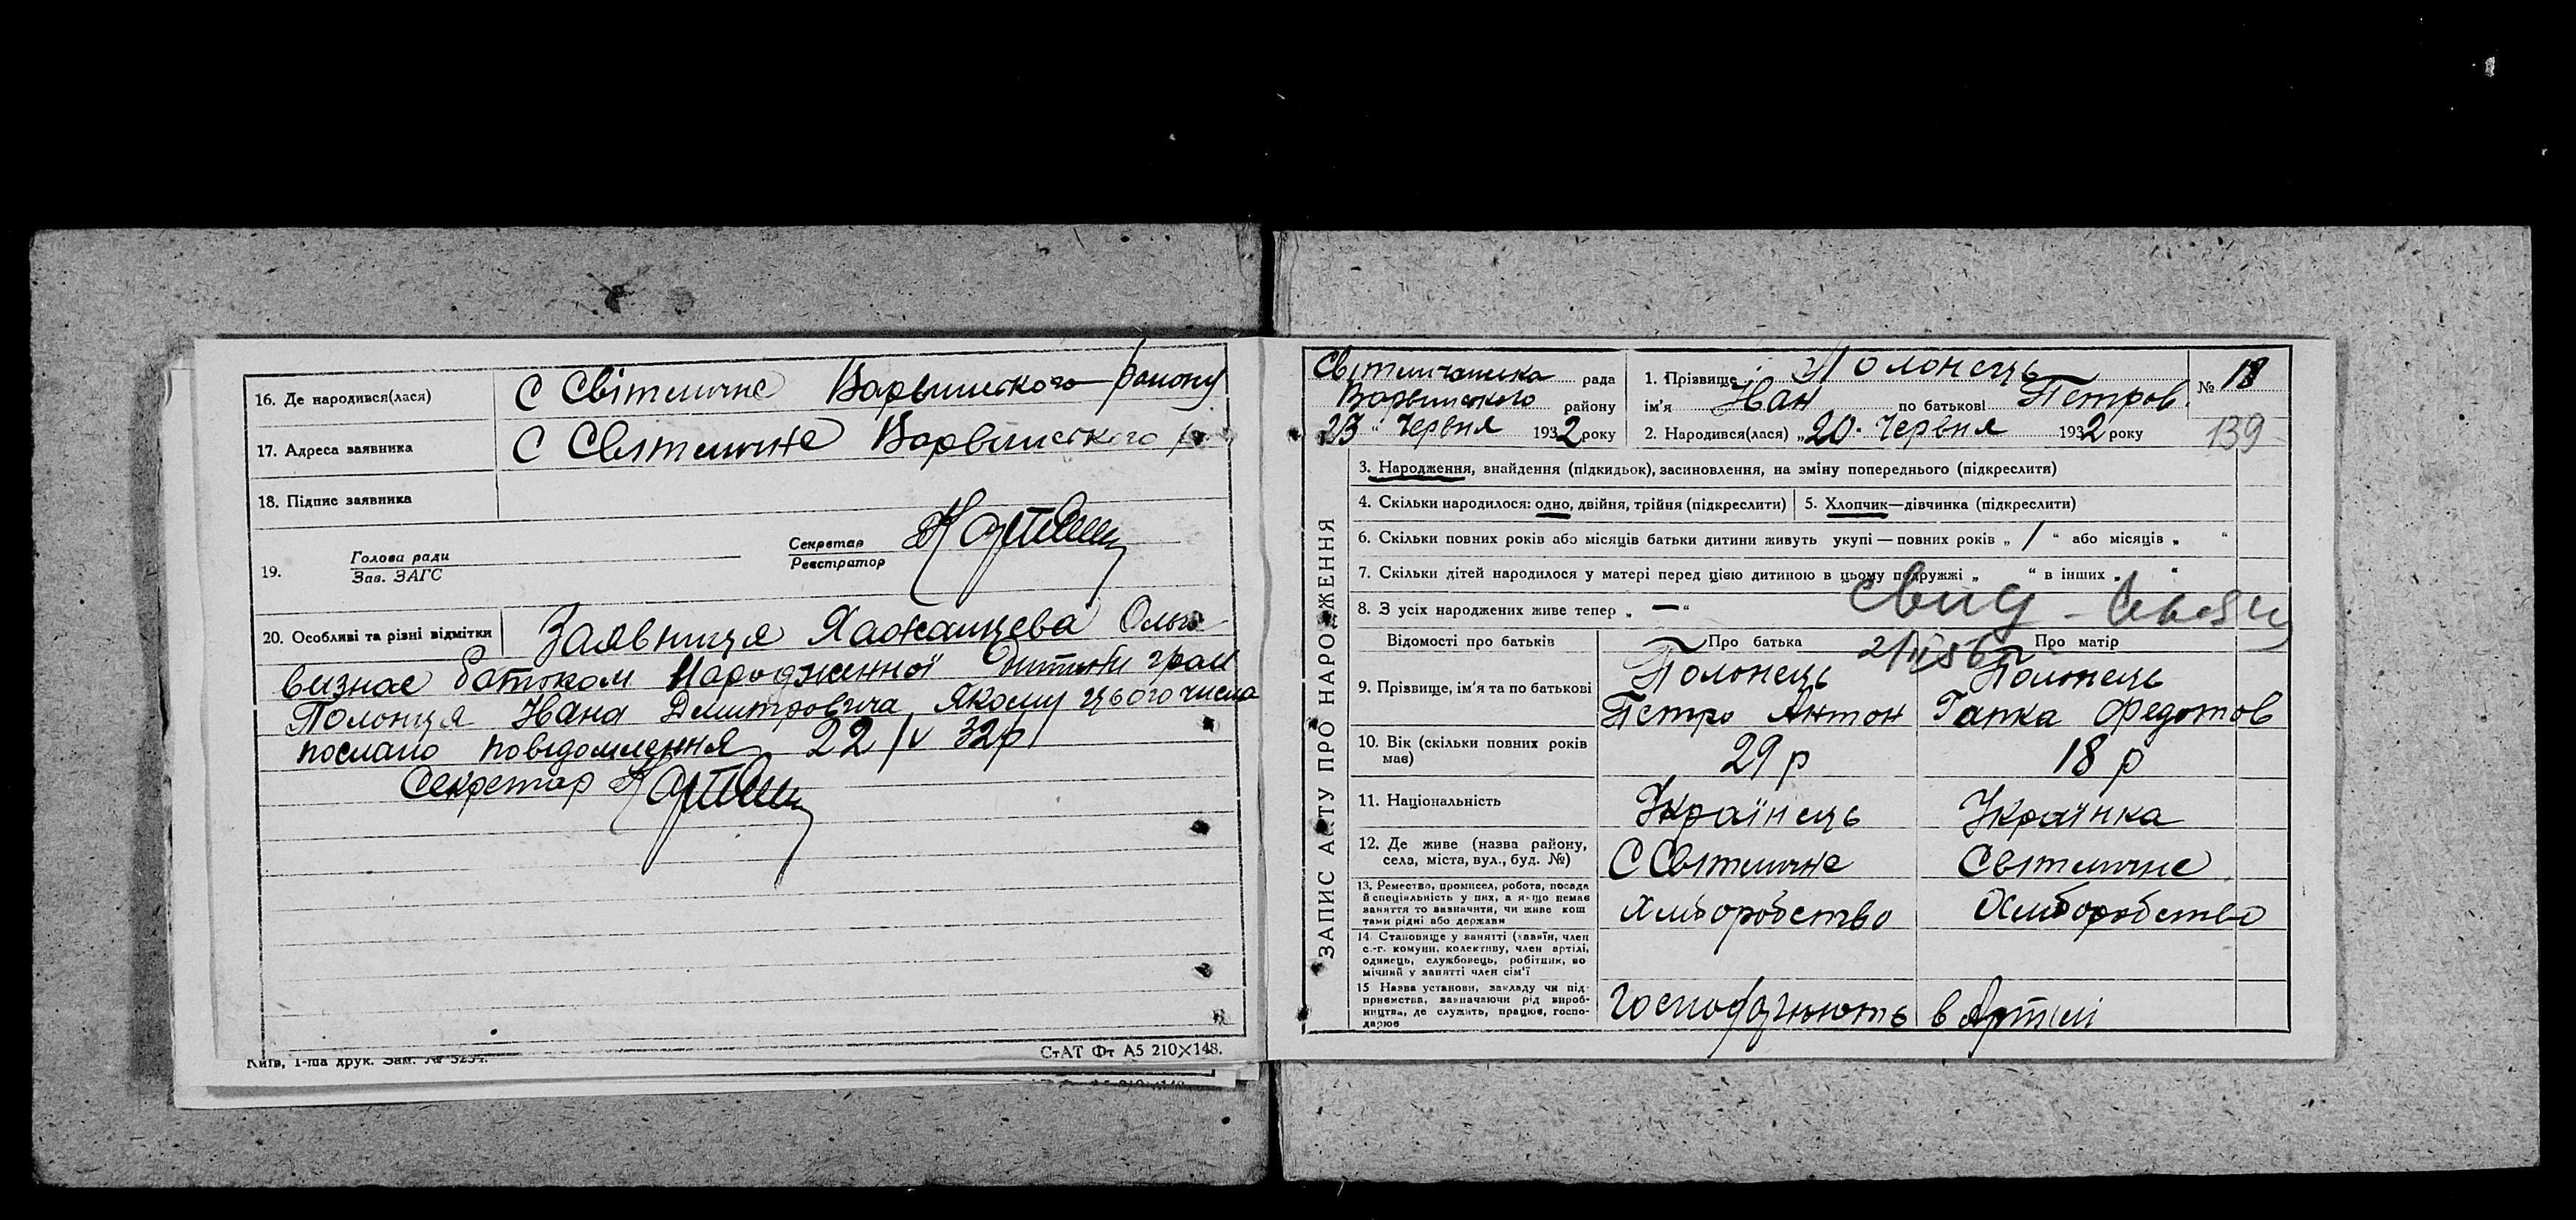 16. Де народився(лася) С Світличне Варвинского району
17. Адреса заявника С Світличне Варвинского р.
18. Підпис заявника
19. Голова ради
Зав. ЗАГС
Секретар
Реєстратор
20. Особливі та різні відмітки Заявниця Ольга
визнає батьком Народженної Дитини грам
Полонця Івана Дмитровича Якому цього числа
послано повідомлення 22/V 32р
Секретар
Київ, 1-ша друк. Зам. № 5254.
СтАТ Фт А5 210×148.
ЗАПИС АКТУ ПРО НАРОДЖЕННЯ
Світличанська рада
Варвинського району
23 " Червня 1932 року
1. Прізвище Полонець
ім'я Іван по батькові Петров.
2. Народився(лася) „20. Червня 1932 року
№ 18
139
3. Народження, внайдення (підкидьок), засиновлення, на зміну попереднього (підкреслити)
4. Скільки народилося: одно, двійня, трійня (підкреслити) 5. Хлопчик—дівчинка (підкреслити)
6. Скільки повних років або місяців батьки дитини живуть укупі — повних років „ 1 “ або місяців „ “
7. Скільки дітей народилося у матері перед цією дитиною в цьому подружжі „ “ в інших „ “
8. З усіх народжених живе тепер „ — “
свид -
Відомості про батьків Про батька Про матір
9. Прізвище, ім'я та по батькові Полонець Полонець
Петро Антон Гапка Федотов
10. Вік (скільки повних років має) 29 р 18 р
11. Національність Українець Українка
12. Де живе (назва району, села, міста, вул., буд. №) С Світличне Світличне
13. Ремество, промисел, робота, посада
й спеціяльність у них, а якщо немає
заняття то визначити, чи живе кош
тами рідні або держави
Хліборобство Хліборобство
14. Становище у занятті (хазяїн, член
с.-г. комуни, колективу, член артілі,
одинець, службовець, робітник, по
мічний у занятті член сім'ї
15 Назва установи, закладу чи під-
приємства, зазначаючи рід вироб-
ництва, де служить, працює, госпо-
дарює
Господарюють в Артілі